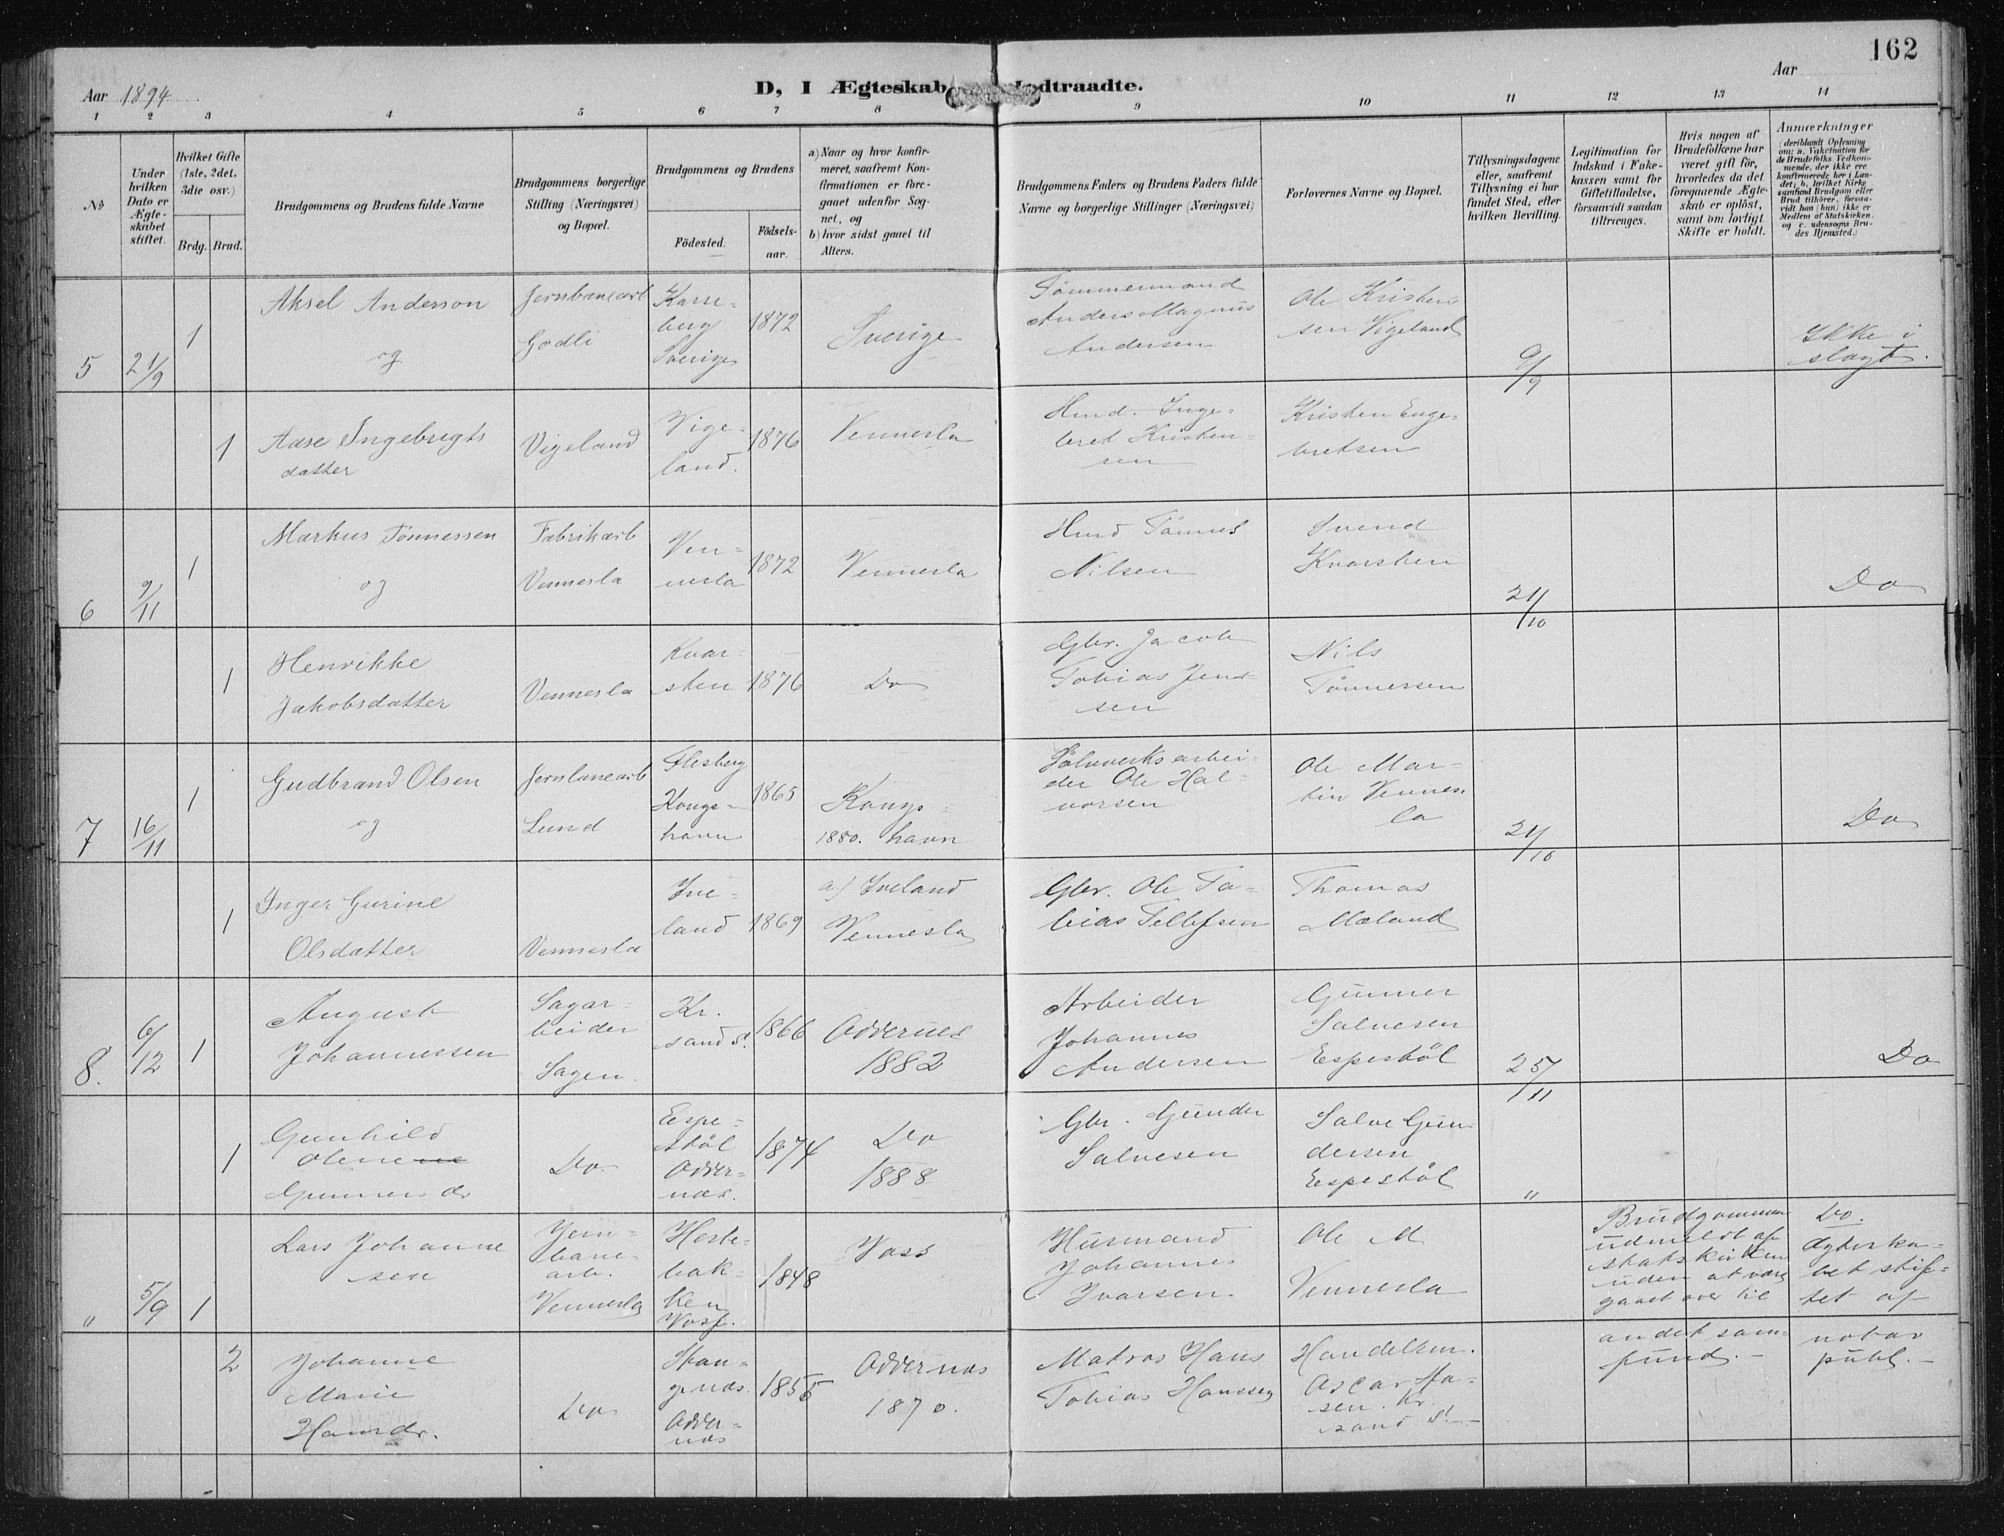 162
D, I Ægteskab Indtraadte.
Aar 1894
Aar
1 2 3 4 5 6 7 8 9 10 11 12 13 14
No
Under hvilken Dato er Ægteskabet stiftet.
Hvilket Gifte (1ste, 2det, 3die osv.)
Brdg. Brud.
Brudgommens og Brudens fulde Navne
Brudgommens borgerlige Stilling (Næringsvei) og Bopæl.
Brudgommens og Brudens
Födested.
Födselsaar.
a) Naar og hvor konfirmeret, saafremt Konfirmationen er foregaaet udenför Sognet, og
b) hvor sidst gaaet til Alters.
Brudgommens Faders og Brudens Faders fulde Navne og borgerlige Stillinger (Næringsvei)
Forlovernes Navne og Bopæl.
Tillysningsdagene eller, saafremt Tillysning ei har fundet Sted, efter hvilken Bevilling.
Legitimation for Indskud i Enkekassen samt for Giftetilladelse, forsaavidt saadan tiltrænges.
Hvis nogen af Brudefolkene har været gift för, hvorledes da det foregaaende Ægteskab er oplöst, samt om lovligt Skifte er holdt.
Anmærkninger (deriblandt Oplysning om: a. Vakcination for de Brudefolks Vedkommende, der ikke ere konfirmerede her i Landet; b. hvilket Kirkesamfund Brudgom eller Brud tilhörer, forsaavidt han (hun) ikke er Medlem af Statskirken, og c. udensogns Brudes Hjemsted.)
5
21/9
1
Aksel Anderson
og
Jernbanearb
Godli
Karreberg
Sverige
1872
Sverige
Tömmermand
Anders Magnus
Andersen
Ole Kristen
sen Vigeland
9/9
Ikke i
slægt.
1
Aase Ingebrigts
datter
Vigeland
Vige-
land.
1876
Vennesla
Hmd. Inge-
bret Kristen-
sen
Kristen Enge-
bretsen
6
9/11
1
Markus Tönnessen
og
Fabrikarb
Vennesla
Ven-
nesla
1872
Vennesla
Hmd Tönnes
Nilsen
Svend
Kvarsten
21/10
Do
1
Henrikke
Jakobsdatter
Vennesla
Kvar-
sten
1876
Do
Gbr. Jacob
Tobias Jens-
sen
Nils
Tönnessen
7
16/11
1
Gudbrand Olsen
og
Jernbanearb
Lund
Flesberg
Kongs-
havn
1865
Kongs-
1880. havn
Sölvverksarbei-
der Ole Hal-
vorsen
Ole Mar-
tin Vennes
la
21/10
Do
1
Inger Gurine
Olsdatter
Vennesla
Ive-
land
1869
a) Iveland
Vennesla
Gbr. Ole To-
bias Tellefsen
Thomas
Mæland
8.
6/12
1
August
Johannessen
Sagar-
beider
Sagen.
Kr.
sand S.
1866
Oddernes
1882
Arbeider
Johannes
Andersen
Gunner
Salvesen
Espestöl
25/11
Do
1
Gunhild
Olene
Gunners dr
Do
Espe-
stöl
Odder-
næs.
1874
Do
1888
Gbr. Gunder
Salvesen
Salve Gun-
dersen
Espestöl
"
"
5/9
1
Lars Johanne
sen
Jern-
bane
arb.
Vennesla
Heste-
bak-
ken
Voss.
1848
Voss
Husmand
Johannes
Ivarsen
Ole M
Vennesla
Brudgommen
udmeldt af
statskirken
uden at være
gaaet over til
andet sam-
fund.-
Do.
Ægteska-
bet stif-
tet af
notar
publ.-
2
Johanne
Marie
Hansdr.
Do
Stan-
genæs.
Odder-
næs
1855
Oddernæs
1870.
Matros Hans
Tobias Hanssen
Handelsm.
Oscar Ha-
sen. Kr.
sand S.-